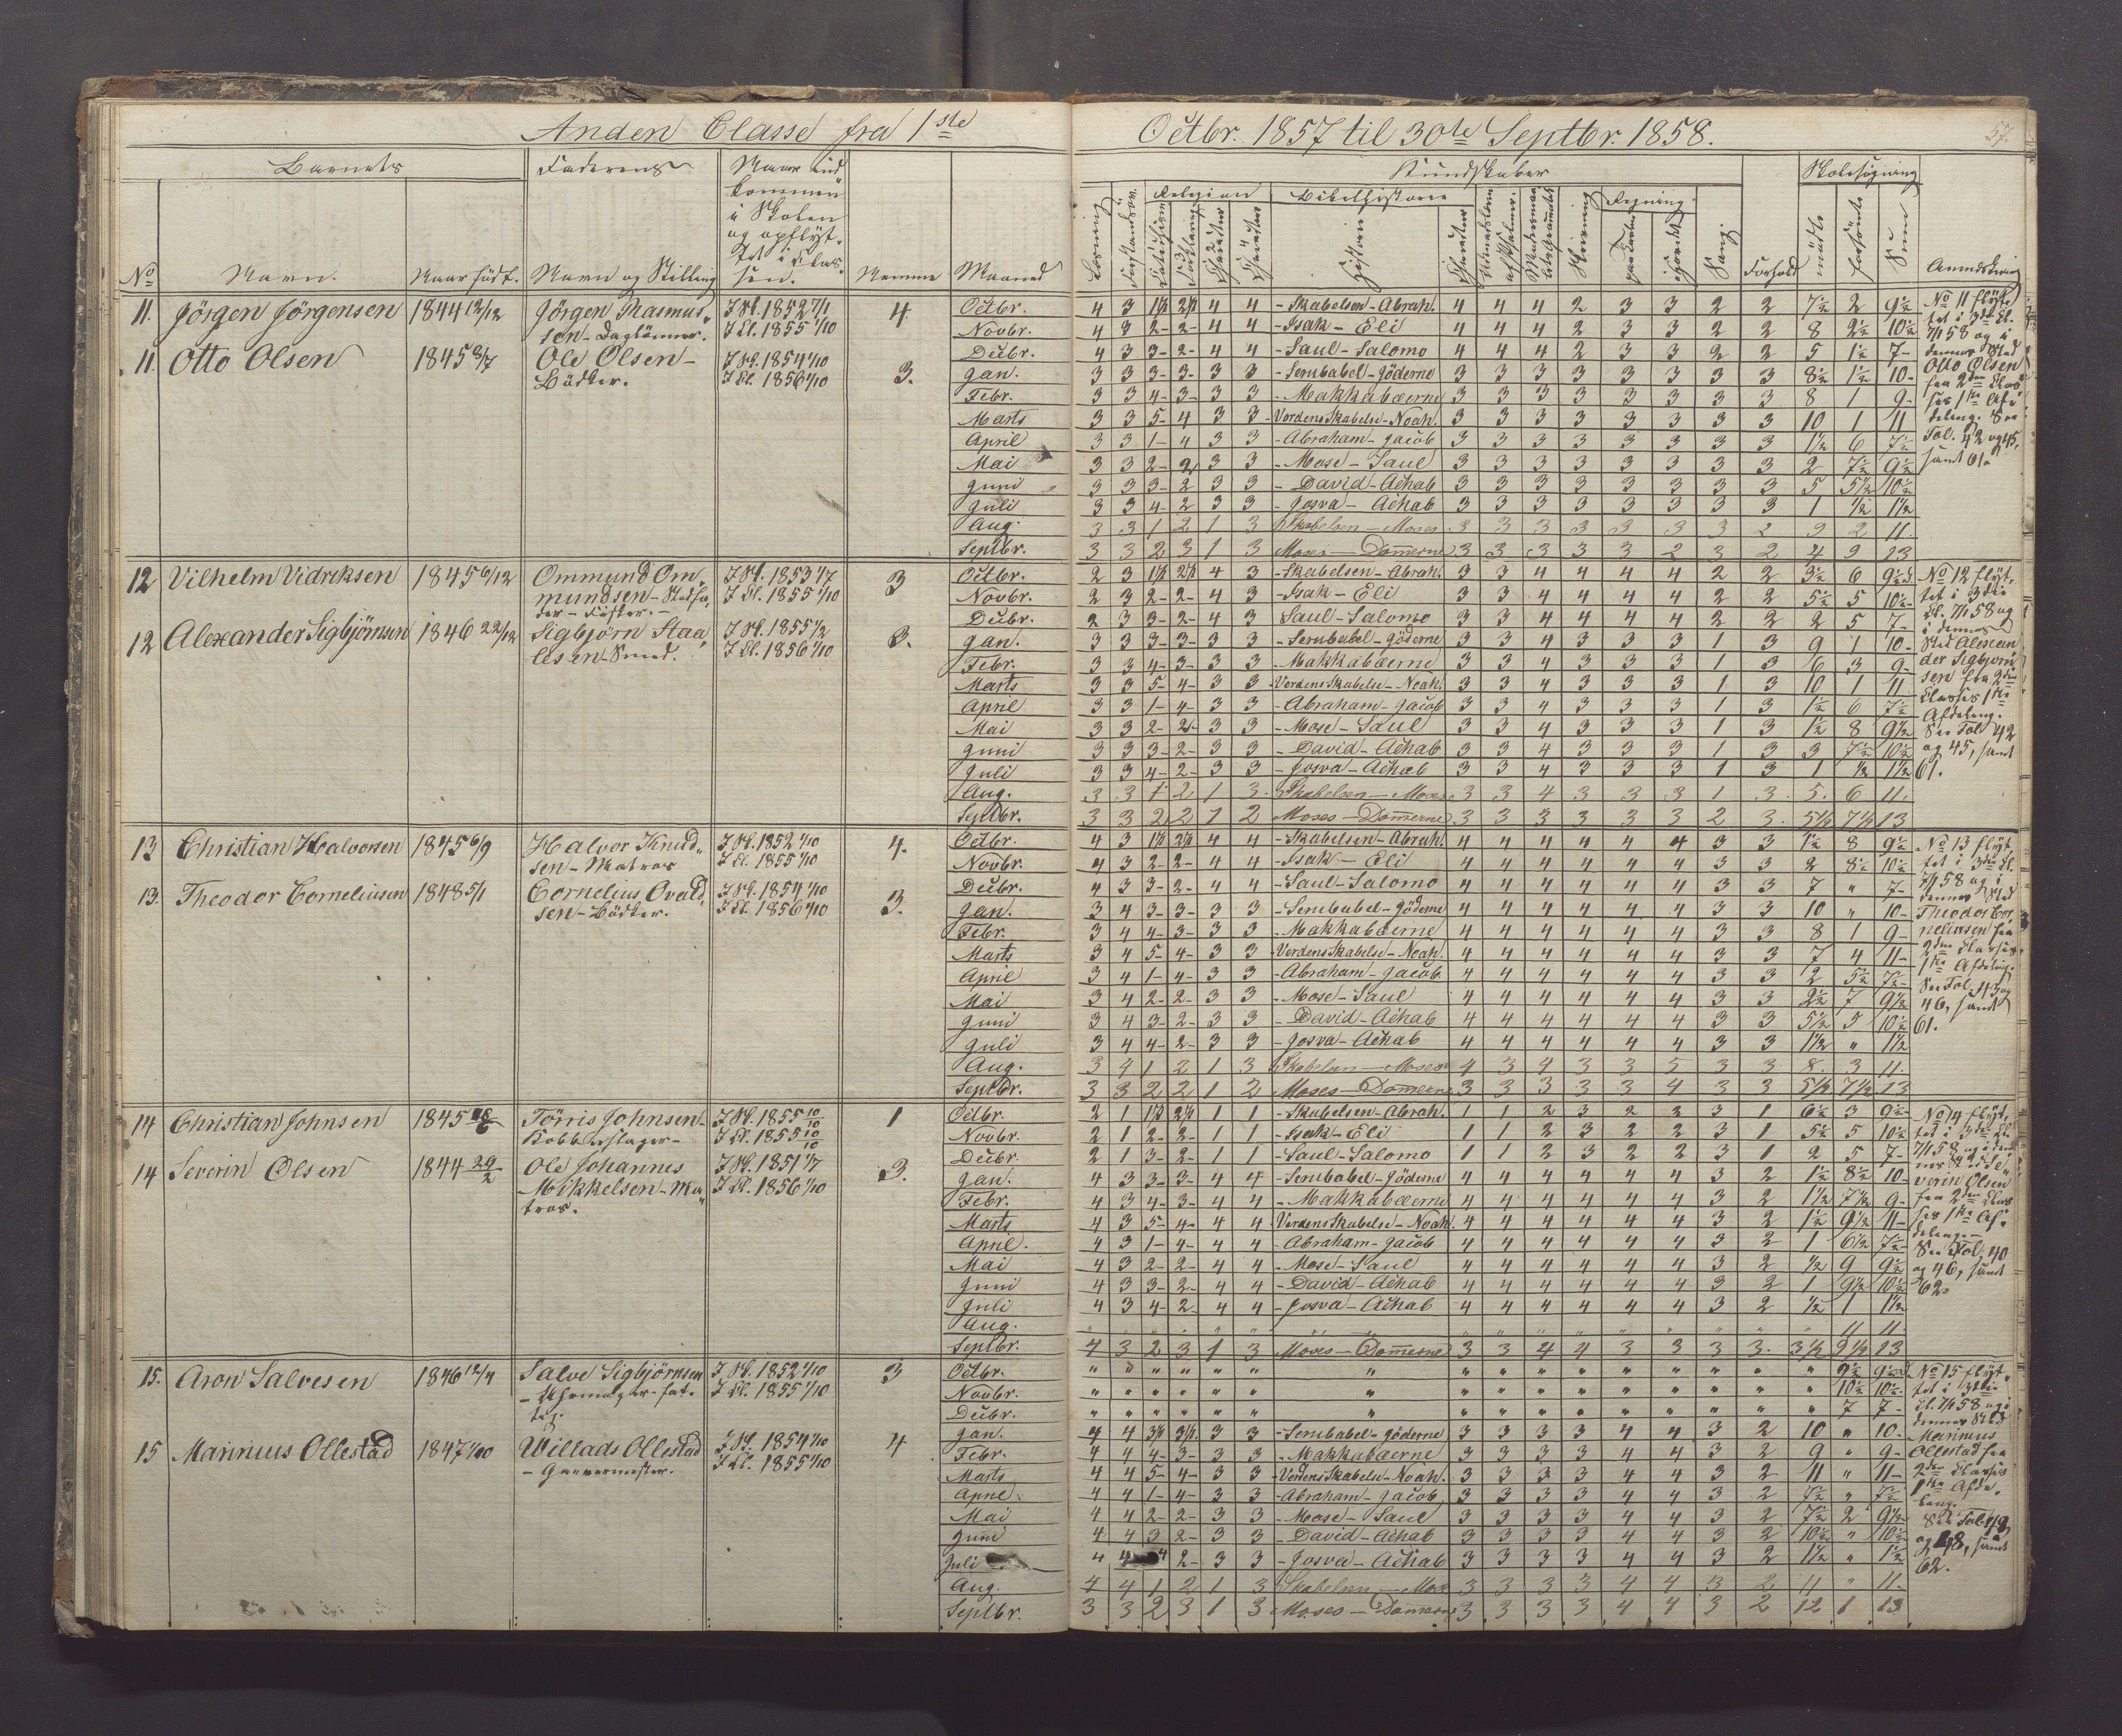 Anden Classe fra 1ste Octbr. 1857 til 30te Septbr. 1858.
57.
Barnets
Faderens
Naar ind
kommen
i Skolen
og opflyt-
tet i Clas-
sen.
Kundskaber
Skolesøgning
Religion
Bibelhistorie
Regning
No
Navn.
Naar født.
Navn og Stilling
Nemme
Maaned
Læsning
Historie
Skrivning
Sang.
Forhold
mødte
forsømte
Sum
Anmærkning
11. Jörgen Jörgensen 1844 12/12 Jörgen Rasmus- I Sk. 1852 7/1 4
sen - Daglönner. I Cl. 1855 1/10
11. Otto Olsen 1845 8/7 Ole Olsen - I Sk. 1854 1/10 3.
Bödker. I Cl. 1856 1/10
Octbr. 4 3 1½ 2½ 4 4 - Skabelsen - Abrah. 4 4 4 2 3 3 2 2 7½ 2 9½
Novbr. 4 3 2 - 2 - 4 4 - Isak - Eli 4 4 4 2 3 3 2 2 8 2½ 10½
Decbr. 4 3 3 - 2 - 4 4 - Saul - Salomo 4 4 4 2 3 3 2 2 5 1½ 7 -
Jan. 3 3 3 - 3 - 3 3 - Serubabel - Jöderne 3 3 3 3 3 3 3 3 8½ 1½ 10 -
Febr. 3 3 4 - 3 - 3 3 - Makkabæerne 3 3 3 3 3 3 3 3 8 1 9 -
Marts 3 3 5 - 4 3 3 - Verdens Skabelse - Noah. 3 3 3 3 3 3 3 3 10 1 11
April 3 3 1 - 4 3 3 - Abraham - Jacob 3 3 3 3 3 3 3 3 1½ 6 7½
Mai 3 3 2 - 2 3 3 - Mose - Saul 3 3 3 3 3 3 3 3 2 7½ 9½
Juni 3 3 3 - 2 3 3 - David - Achab 3 3 3 3 3 3 3 3 5 5½ 10½
Juli 3 3 4 - 2 3 3 - Josva - Achab 3 3 3 3 3 3 3 3 1 ½ 1½
Aug. 3 3 1 2 1 3 Skabelsen - Moses 3 3 3 3 3 3 3 2 9 2 11.
Septbr. 3 3 2 3 1 3 Moses - Dommerne 3 3 3 3 3 2 3 2 4 9 13
No 11 flyt-
tet i 3die Cl.
7/1 58 og i
dennes Sted
Otto Olsen
fra 2den Clas-
ses 1ste Af-
deling. See
Fol. 42 og 45,
samt 61.
12 Vilhelm Vidriksen 1845 6/12 Ommund Om- I Sk. 1853 1/7 3
mundsen - Stedfa-
der - Fisker. - I Cl. 1855 1/10
12 Alexander Sigbjörnsen 1846 22/12 Sigbjörn Staa- I Sk. 1855 1/2 3.
lesen - Smed. I Cl. 1856 1/10
Octbr. 2 3 1½ 2½ 4 3 - Skabelsen - Abrah. 3 3 4 4 4 4 2 2 3½ 6 9½
Novbr. 2 3 2 - 2 - 4 3 - Isak - Eli 3 3 4 4 4 4 2 2 5½ 5 10½
Decbr. 2 3 3 - 2 - 4 3 Saul - Salomo 3 3 4 4 4 4 2 2 2 5 7 -
Jan. 3 3 3 - 3 - 3 3 - Serubabel - Jöderne 3 3 4 3 3 3 1 3 9 1 10 -
Febr. 3 3 4 - 3 - 3 3 - Makkabæerne 3 3 4 3 3 3 1 3 6 3 9 -
Marts 3 3 5 - 4 - 3 3 - Verdens Skabelse - Noah. 3 3 4 3 3 3 1 3 10 1 11
April 3 3 1 - 4 - 3 3 - Abraham - Jacob 3 3 4 3 3 3 1 3 1½ 6 7½
Mai 3 3 2 - 2 - 3 3 - Mose - Saul 3 3 4 3 3 3 1 3 1½ 8 9½
Juni 3 3 3 - 2 - 3 3 - David - Achab 3 3 4 3 3 3 1 3 3 7½ 10½
Juli 3 3 4 - 2 - 3 3 - Josva - Achab 3 3 4 3 3 3 1 3 1 ½ 1½
Aug. 3 3 1 2 1 3 Skabelsen - Moses 3 3 4 3 3 3 1 3 5. 6 11.
Septbr. 3 3 2 2 1 2 Moses - Dommerne 3 3 3 3 3 3 2 3. 5½ 7½ 13
No 12 flyt-
tet i 3die
Cl. 7/1 58 og
i dennes
Sted Alexan
der Sigbjörn
sen fra 2den
Classes 1ste
Afdeling.
See Fol 42
og 45, samt
61.
13 Christian Halvorsen 1845 6/9 Halvor Knud- I Sk. 1852 1/10 4.
sen - Matros I Cl. 1855 1/10
13. Theodor Corneliusen 1848 5/1 Cornelius Ovald- I Sk. 1854 1/10 3.
sen - Bödker. I Cl. 1856 1/10
Octbr. 4 3 1½ 2½ 4 4 - Skabelsen - Abrah. 4 4 4 4 4 4 3 3 1½ 8 9½
Novbr. 4 3 2 - 2 - 4 4 - Isak - Eli 4 4 4 4 4 4 3 3 2 8½ 10½
Decbr. 4 3 3 - 2 - 4 4 - Saul - Salomo 4 4 4 4 4 4 3 3 7 " 7 -
Jan. 3 4 3 - 3 - 3 3 - Serubabel - Jöderne 4 4 4 4 4 4 3 3 10 " 10 -
Febr. 3 4 4 - 3 - 3 3 - Makkabæerne 4 4 4 4 4 4 3 3 8 1 9 -
Marts 3 4 5 - 4 - 3 3 - Verdens Skabelse - Noah. 4 4 4 4 4 4 3 3 7 4 11 -
April 3 4 1 - 4 - 3 3 - Abraham - Jacob 4 4 4 4 4 4 3 3 2 5½ 7½
Mai 3 4 2 - 2 - 3 3 - Mose - Saul 4 4 4 4 4 4 3 3 2½ 7 9½
Juni 3 4 3 - 2 - 3 3 - David - Achab 4 4 4 4 4 4 3 3 5½ 5 10½
Juli 3 4 4 - 2 - 3 3 - Josva - Achab 4 4 4 4 4 4 3 3 1½ " 1½
Aug. 3 4 1 2 1 3 Skabelsen - Moses 4 3 4 3 3 5 3 3 8. 3 11.
Septbr. 3 3 2 2 1 2 Moses - Dommerne 3 3 3 3 3 4 3 3 5½ 7½ 13
No 13 flyt
tet i 3die Cl.
7/1 58 og i
dennes Sted
Theodor Cor
neliusen fra
2den Classes
1ste Afdeling.
See Fol. 43 og
46, samt
61.
14 Christian Johnsen 1845 Törris Johnsen - I Sk. 1855 10/10 1
Kobberslager - I Cl. 1855 10/10
14 Severin Olsen 1844 29/2 Ole Johannes I Sk. 1851 1/7 3.
Mikkelsen - Ma- I Cl. 1856 1/10
tros.
Octbr. 2 1 1½ 2½ 1 1 - Skabelsen - Abrah. 1 1 2 3 2 2 3 1 6½ 3 9½
Novbr. 2 1 2 - 2 - 1 1 - Isak - Eli 1 1 2 3 2 2 3 1 5½ 5 10½
Decbr. 2 1 3 - 2 - 1 1 - Saul - Salomo 1 1 2 3 2 2 3 1 2 5 7 -
Jan. 4 3 3 - 3 - 4 4 - Serubabel - Jöderne 4 4 4 4 4 4 3 2 1½ 8½ 10 -
Febr. 4 3 4 - 3 - 4 4 - Makkabæerne 4 4 4 4 4 4 3 2 1½ 7½ 9 -
Marts 4 3 5 - 4 - 4 4 - Verdens Skabelse - Noah 4 4 4 4 4 4 3 2 1½ 9½ 11 -
April. 4 3 1 - 4 - 4 4 - Abraham - Jacob 4 4 4 4 4 4 3 2 1 6½ 7½
Mai 4 3 2 - 2 - 4 4 - Mose - Saul 4 4 4 4 4 4 3 2 ½ 9 9½
Juni 4 3 3 - 2 - 4 4 - David - Achab 4 4 4 4 4 4 3 2 1 9½ 10½
Juli 4 3 4 - 2 - 4 4 - Josva - Achab 4 4 4 4 4 4 3 2 ½ 1 1½
Aug. " " " " " " " " " " " " " " " " 11 11.
Septbr. 4 3 2 3 1 3 Moses - Dommerne 3 3 4 4 3 3 3 3. 3½ 9½ 13
7/1 58
verin Olsen
fra 2den Clas
ses 1ste Af-
deling. -
See Fol. 40
og 46, samt
62.
15. Aron Salvesen 1846 12/4 Salve Sigbjörnsen I Sk. 1852 1/10 3
- Uhrmager - fat- I Cl. 1855 1/10
tig.
15 Marinius Ollestad 1847 1/10 Willads Ollestad I Sk. 1854 1/10 4
- Garvermester. I Cl. 1855 1/10
Octbr. " " " " " " " " " " " " " " " " 9½ 9½
Novbr. " " " " " " " " " " " " " " " " 10½ 10½
Decbr. " " " " " " " " " " " " " " " " 7 7 -
Jan. 4 4 3½ 3½ 3 3 - Serubabel - Jöderne 3 3 3 3 4 4 3 2 10 " 10 -
Febr. 4 4 4 - 3 - 3 3 - Makkabæerne 3 3 3 3 4 4 3 2 9 " 9 -
Marts 4 4 5 - 4 - 3 3 - Verdens Skabelse - Noah. 3 3 3 3 4 4 3 2 11 " 11 -
April 4 4 1 - 4 - 3 3 - Abraham - Jacob 3 3 3 3 4 4 3 2 7½ " 7½
Mai 4 4 2 - 2 - 3 3 - Mose - Saul 3 3 3 3 4 4 3 2 7½ 2 9½
Juni 4 4 3 2 - 3 3 - David - Achab 3 3 3 3 4 4 3 2 10½ " 10½
Juli 4 4 4 2 - 3 3 - Josva - Achab 3 3 3 3 4 4 3 2 1½ " 1½
Aug. 4 4 1 2 1 3 Skabelsen - Mose 3 3 3 3 4 4 3 2 11 " 11.
Septbr. 3 3 2 3 1 3 Moses - Dommerne 3 3 3 3 4 4 3 2 12 1 13
No 15 flyt-
tet i 3die
Cl. 7/1 58 og i
dennes Sted
Marinius
Ollestad fra
2den Classes
1ste Afde-
ling.
See Fol. 48, samt
62.